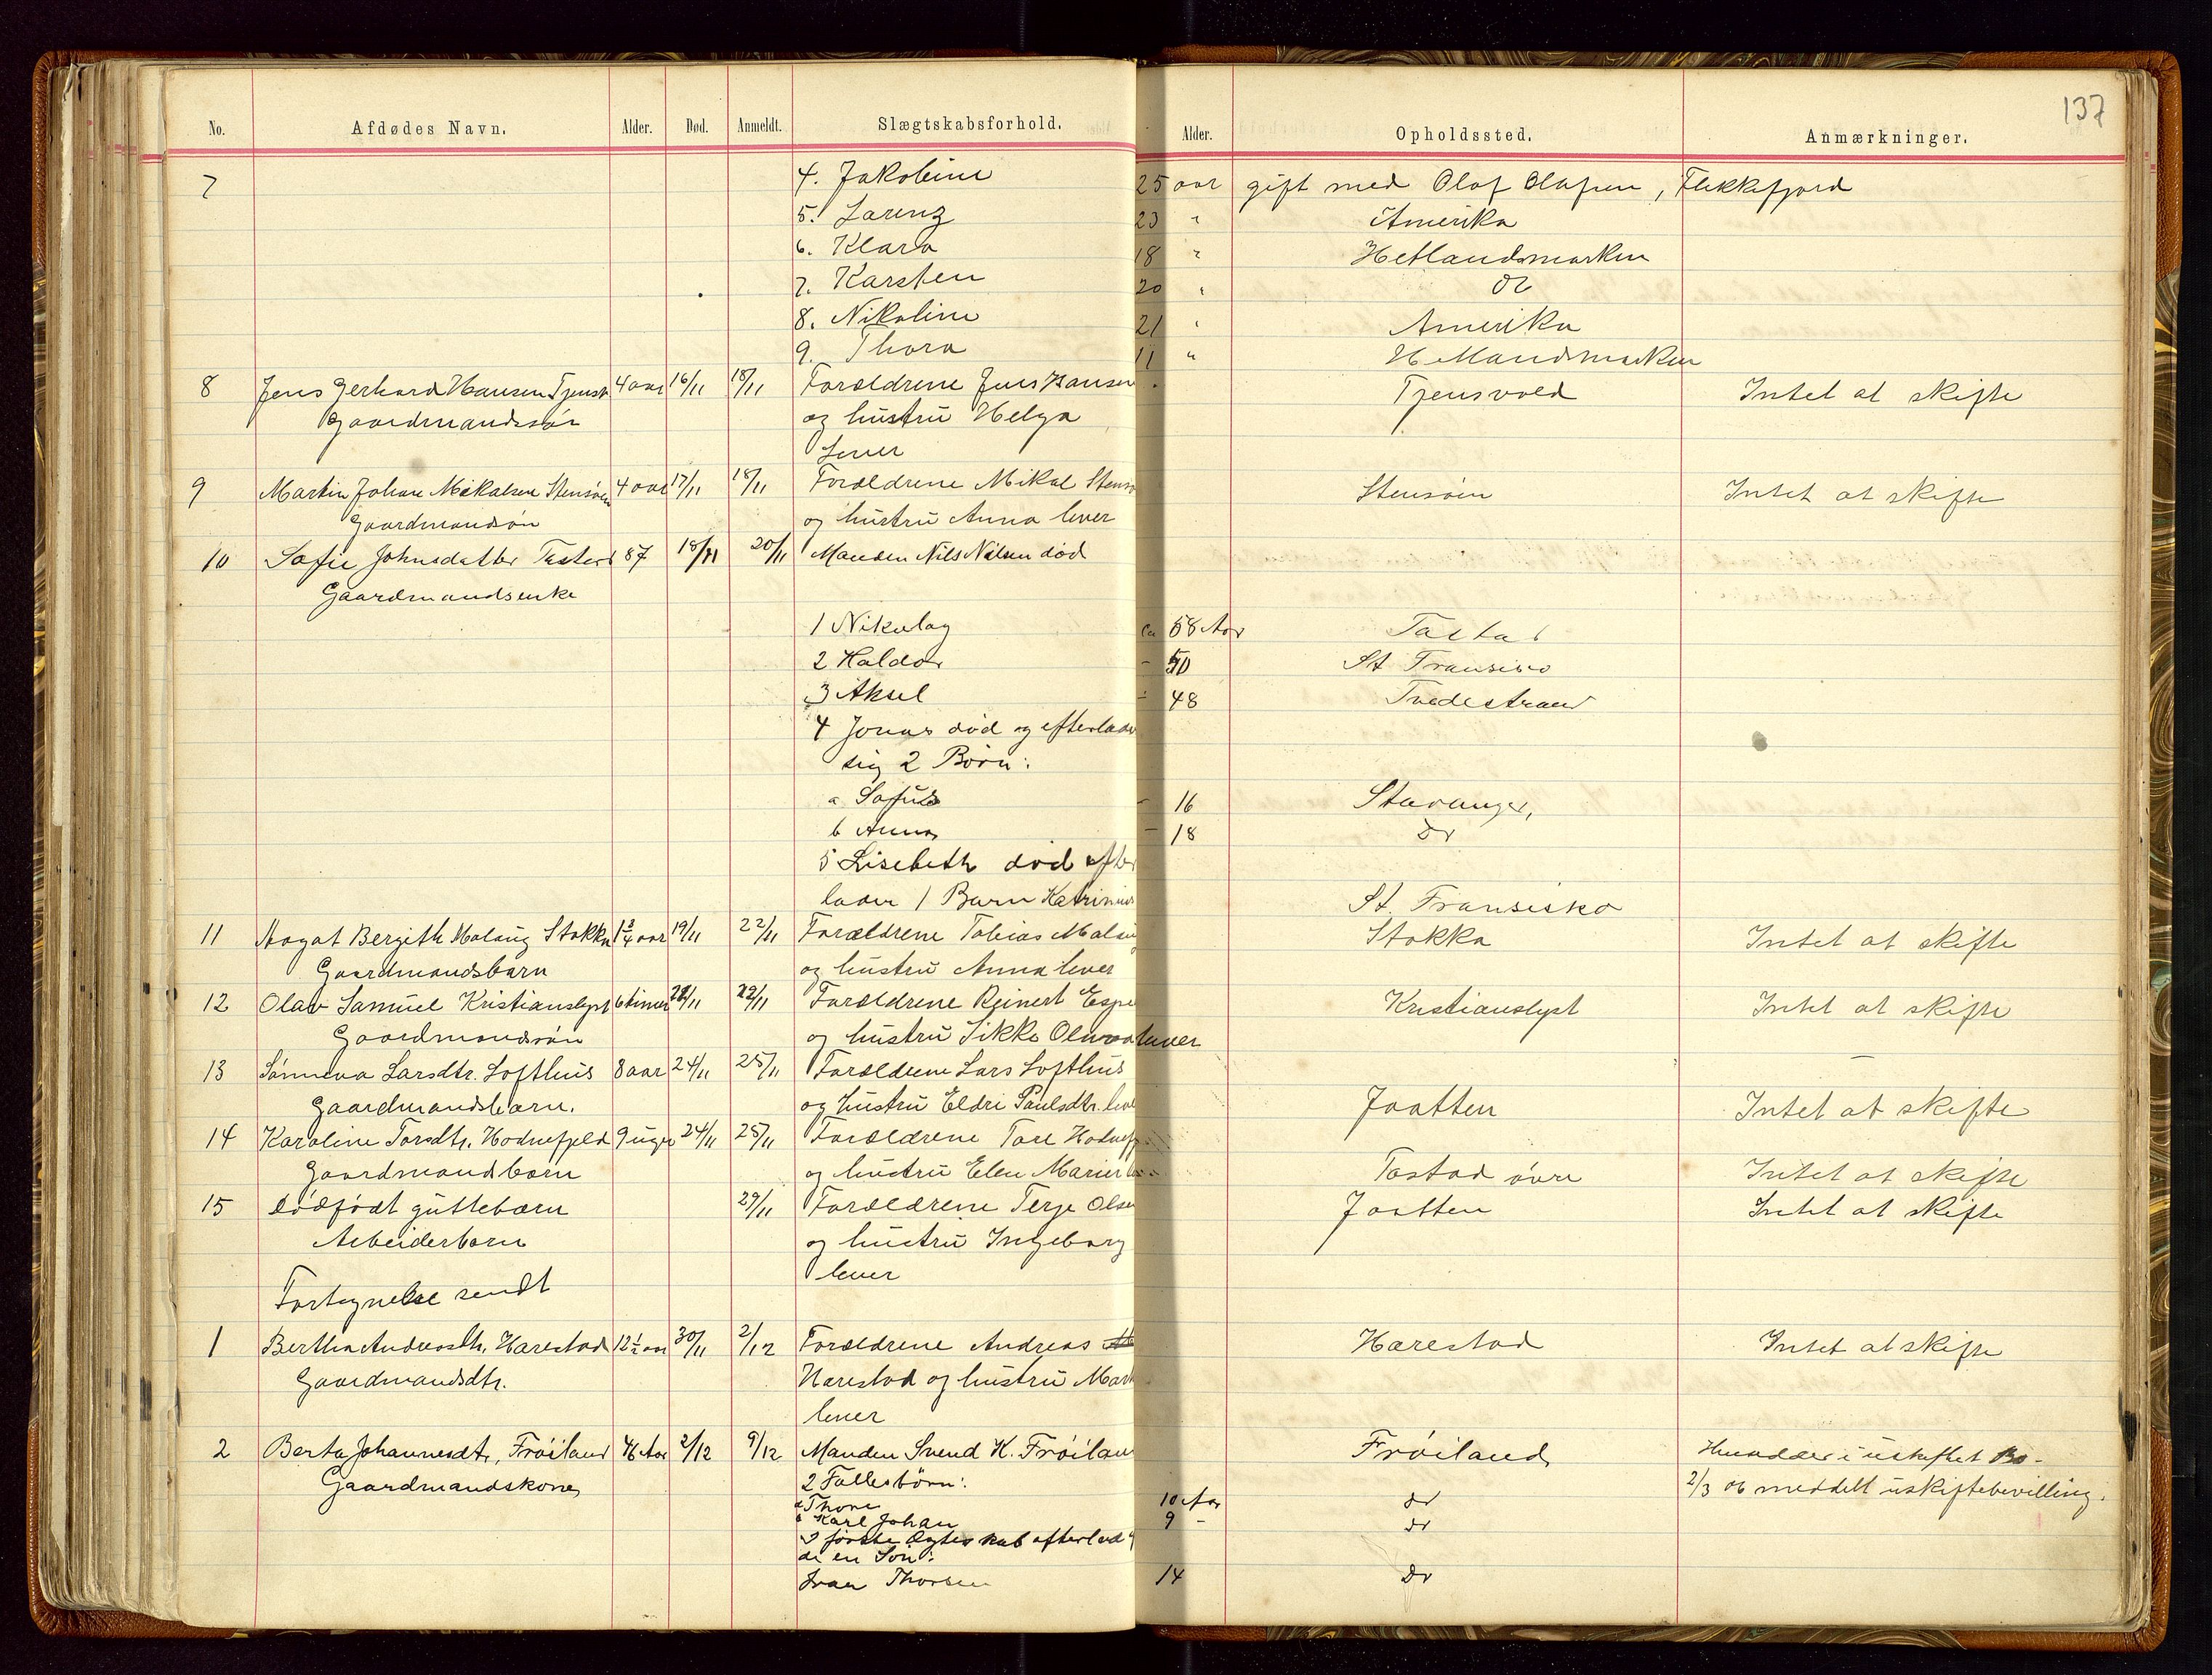 137
No. Afdødes Navn. Alder. Død. Anmeldt. Slægtskabsforhold. Alder. Opholdssted. Anmærkninger.
7 4. Jakobine 25 aar gift med Olaf Olafsen, Flekkefjord
5. Lorenz 23 " Amerika
6. Klara 18 " Hetlandsmarken
7. Karsten 20 " do
8. Nikoline 21 " Amerika
9. Thora 11 " Hetlandsmarken
8 Jens Gerhard Hansen Tjensv 4 aar 16/11 18/11 Forældrene Jens Hansen Tjensvold Intet at skifte
Gaardmandssøn og hustru Helga
Lever
9 Martin Johan Mikalsen Stensøen 4 aar 17/11 18/11 Forældrene Mikal Stensø Stensøen Intet at skifte
Gaardmandsøn og hustru Anna lever
10 Sofie Johnsdatter Tastad 87 18/11 20/11 Manden Nils Nilsen død
Gaardmandsenke
1 Nikolay ca 58 Aar Tastad
2 Haldor - 50 St Fransisco
3 Aksel - 48 Tvedestrand
4 Jonas død og efterlader
sig 2 Børn:
a Sofus - 16 Stavanger,
b Anna - 18 do
5 Lisebeth død efter
lader 1 Barn Katrine St. Fransisko
11 Aagot Bergith Stokka 1 3/4 aar 19/11 22/11 Forældrene Tobias Stokka Intet at skifte
Gaardmandsbarn og hustru Anna lever
12 Olav Samuel Kristianslyst 6 timer 22/11 Forældrene Reinert Espe Kristianslyst Intet at skifte
Gaardmandssøn og hustru Sikke lever
13 Sønneva Larsdtr. Lofthus 8 aar 24/11 25/11 Forældrene Lars Lofthus
Gaardmandsbarn. og hustru Eldri Paulsdtr. leve Jaatten Intet at skifte
14 Karoline Torsdtr. Hodnefjeld 9 uger 24/11 25/11 Forældrene Tore Hodnefj
Gaardmandsbarn og hustru Elen Marie Tastad øvre Intet at skifte
15 Dødfødt guttebarn 29/11 Forældrene Terje Olse Jaatten Intet at skifte
Arbeiderbarn og hustru Ingeborg
lever
Fortegnelse sendt
1 Bertha Andreasdtr. Harestad 12 1/2 aar 30/11 2/12 Forældrene Andreas Harestad Intet at skifte
Gaardmandsdtr. Harestad og hustru Mart
lever
2 Berta Johannesdtr. Frøiland 46 Aar 2/12 9/12 Manden Svend K. Frøilan Frøiland Hensidder i uskiftet Bo -
Gaardmandskone 2 Fællesbørn: 2/3 06 meddelt uskiftebevilling.
a Thore 10 Aar do
b Karl Johan 9 - do
I første Ægteskab efterlod
de en Søn:
Ivar Thorsen 14 do